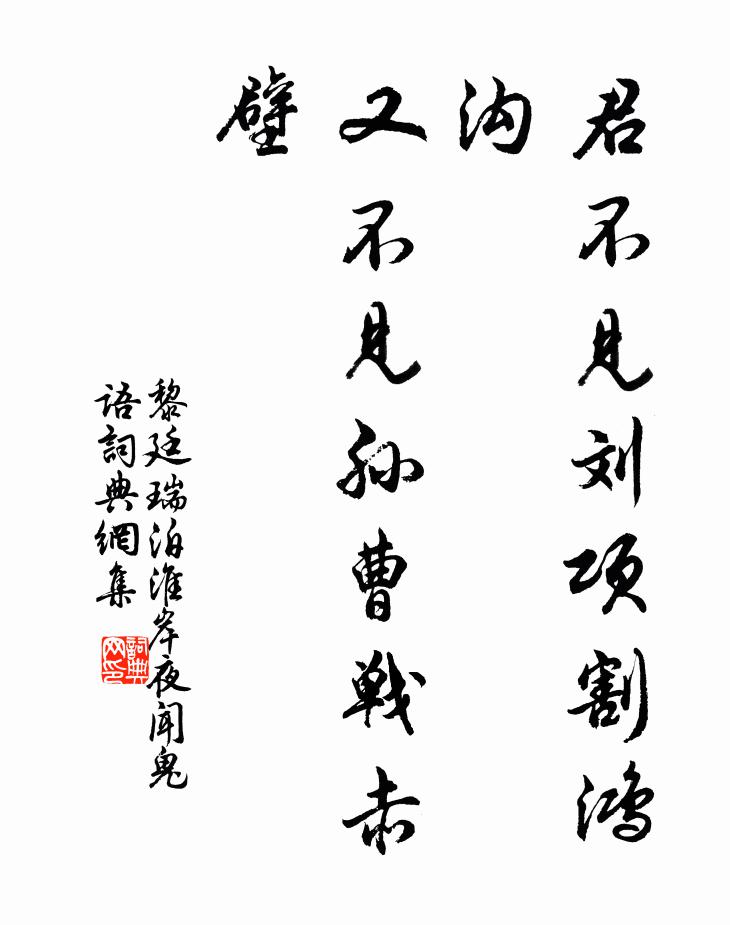 君不见刘项割鸿
沟
又不见孙曹戰赤
壁
黎廷瑞泊淮岸夜闻鬼
语詞典網集
詞典
网印